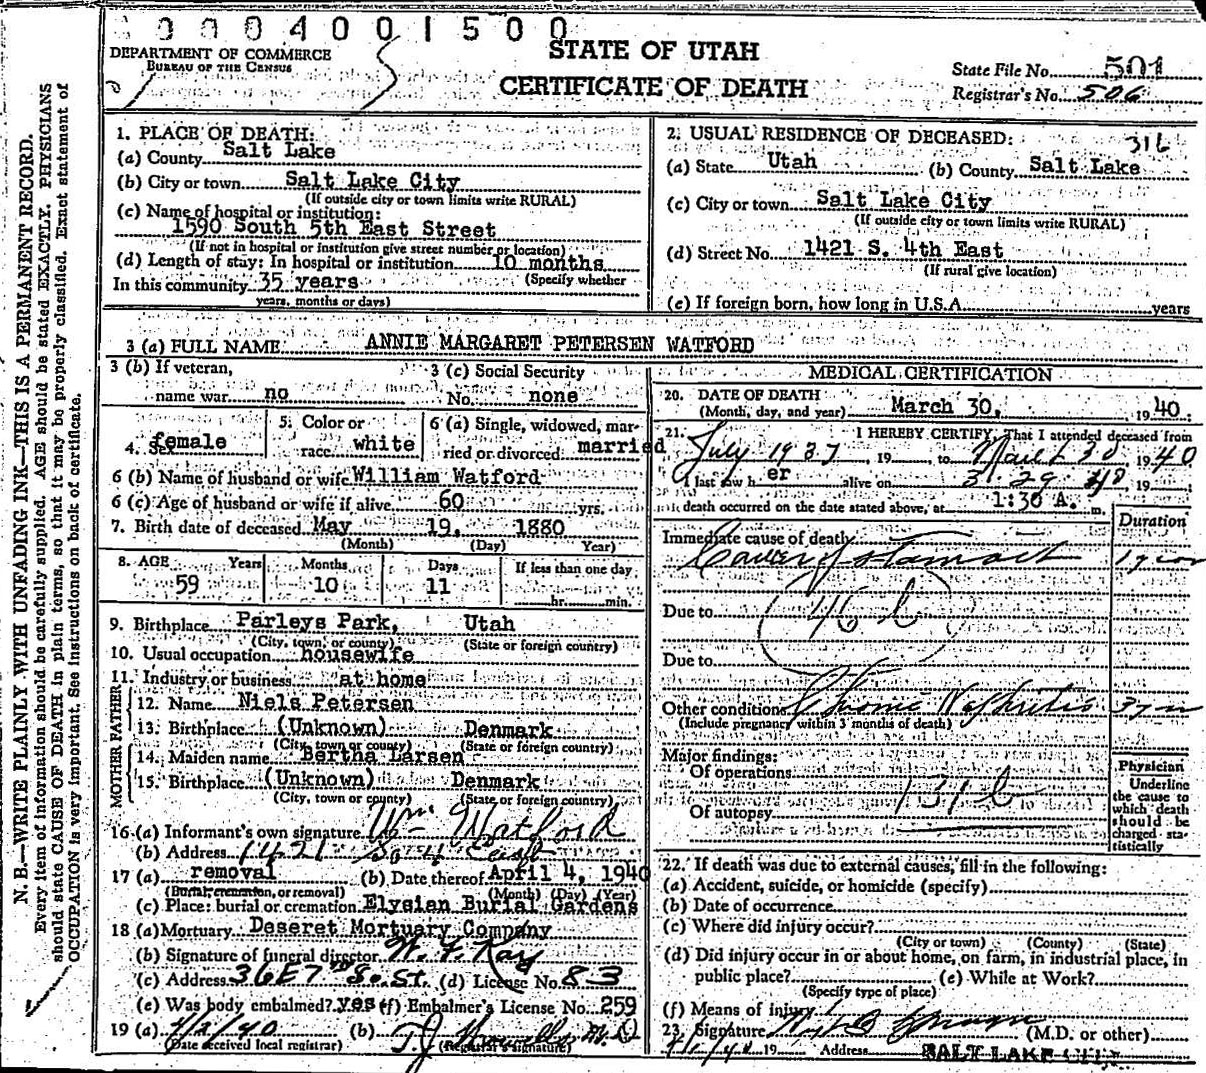 0004001500
DEPARTMENT OF COMMERCE
BUREAU OF THE CENSUS
STATE OF UTAH
CERTIFICATE OF DEATH
State File No. 501
Registrar's No. 506
N. B.—WRITE PLAINLY WITH UNFADING INK—THIS IS A PERMANENT RECORD.
Every item of information should be carefully supplied. AGE should be stated EXACTLY. PHYSICIANS
should state CAUSE OF DEATH in plain terms, so that it may be properly classified. Exact statement of
OCCUPATION is very important. See instructions on back of certificate.
1. PLACE OF DEATH:
(a) County Salt Lake
(b) City or town Salt Lake City
(If outside city or town limits write RURAL)
(c) Name of hospital or institution:
1590 South 5th East Street
(If not in hospital or institution give street number or location)
(d) Length of stay: In hospital or institution 10 months
(Specify whether
In this community 35 years
years, months or days)
2. USUAL RESIDENCE OF DECEASED: 316
(a) State Utah (b) County Salt Lake
(c) City or town Salt Lake City
(If outside city or town limits write RURAL)
(d) Street No. 1421 S. 4th East
(If rural give location)
(e) If foreign born, how long in U.S.A. years
3 (a) FULL NAME ANNIE MARGARET PETERSEN WATFORD
3 (b) If veteran,
name war no
3 (c) Social Security
No. none
4. Sex female
5. Color or
race white
6 (a) Single, widowed, mar-
ried or divorced married
6 (b) Name of husband or wife William Watford
6 (c) Age of husband or wife if alive 60 yrs.
7. Birth date of deceased May 19, 1880
(Month) (Day) Year)
8. AGE Years Months Days If less than one day
59 10 11 hr. min.
9. Birthplace Parleys Park, Utah
(City, town, or county) (State or foreign country)
10. Usual occupation housewife
11. Industry or business at home
FATHER
12. Name Niels Petersen
13. Birthplace (Unknown) Denmark
(City, town or county) (State or foreign country)
MOTHER
14. Maiden name Bertha Larsen
15. Birthplace (Unknown) Denmark
(City, town or county) (State or foreign country)
16 (a) Informant's own signature Wm Watford
(b) Address 1421 So 4 East
17 (a) removal (b) Date thereof April 4, 1940
(Burial, cremation, or removal) (Month) (Day) (Year)
(c) Place: burial or cremation Elysian Burial Gardens
18 (a) Mortuary Deseret Mortuary Company
(b) Signature of funeral director
(c) Address 36 E 7th So. St. (d) License No. 83
(e) Was body embalmed? yes (f) Embalmer's License No. 259
19 (a) 4/2/40 (b) T.J. Howells M.D
Date received local registrar) (Registrar's signature)
MEDICAL CERTIFICATION
20. DATE OF DEATH
(Month, day, and year) March 30, 1940.
21. I HEREBY CERTIFY, That I attended deceased from
July 1937, 19 , to March 30 1940
I last saw her alive on 3. 29. 40, 19
death occurred on the date stated above, at 1:30 A. m.
Duration
Immediate cause of death
Cancer of stomach 1 year
Due to 46 b
Due to
Other conditions Chronic Nephritis 3 yrs
(Include pregnancy within 3 months of death)
Major findings:
Of operations
131 b
Of autopsy
Physician
Underline
the cause to
which death
should be
charged sta-
tistically
22. If death was due to external causes, fill in the following:
(a) Accident, suicide, or homicide (specify)
(b) Date of occurrence
(c) Where did injury occur?
(City or town) (County) (State)
(d) Did injury occur in or about home, on farm, in industrial place, in
public place? (e) While at Work?
(Specify type of place)
(f) Means of injury
23. Signature (M.D. or other)
19 Address SALT LAKE CITY